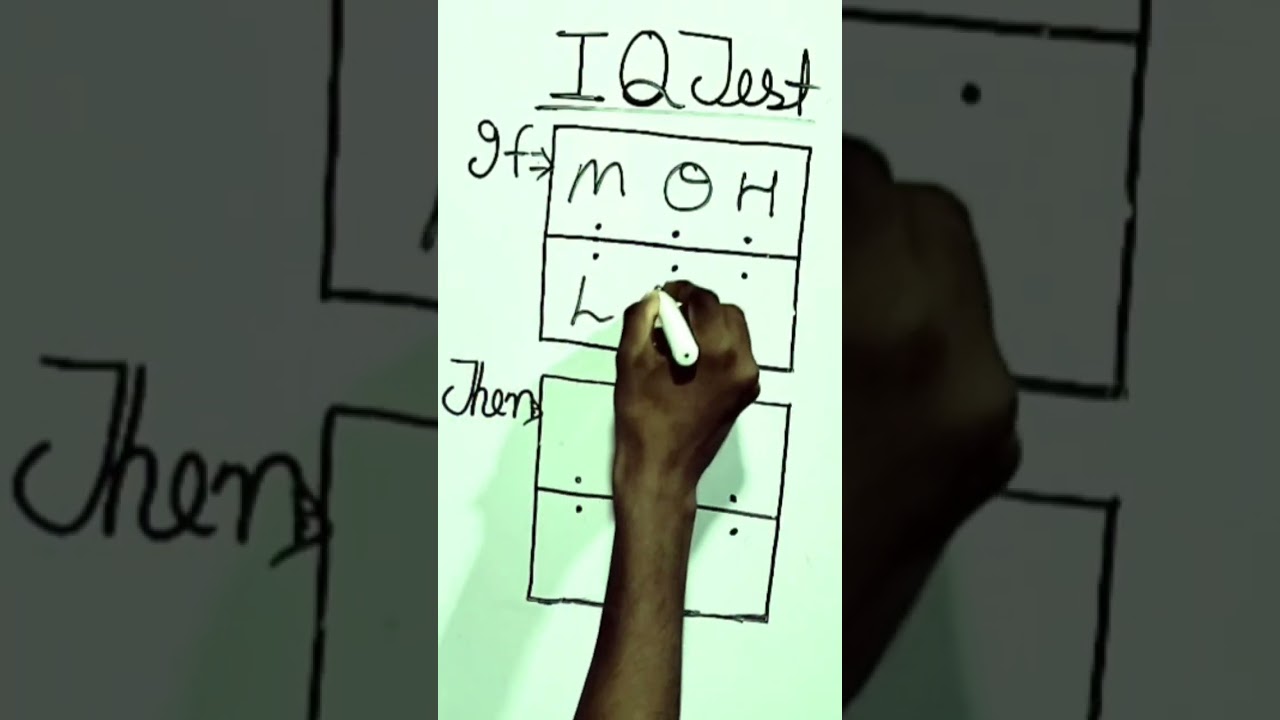 IQ Test
If→ M O H
L
Then